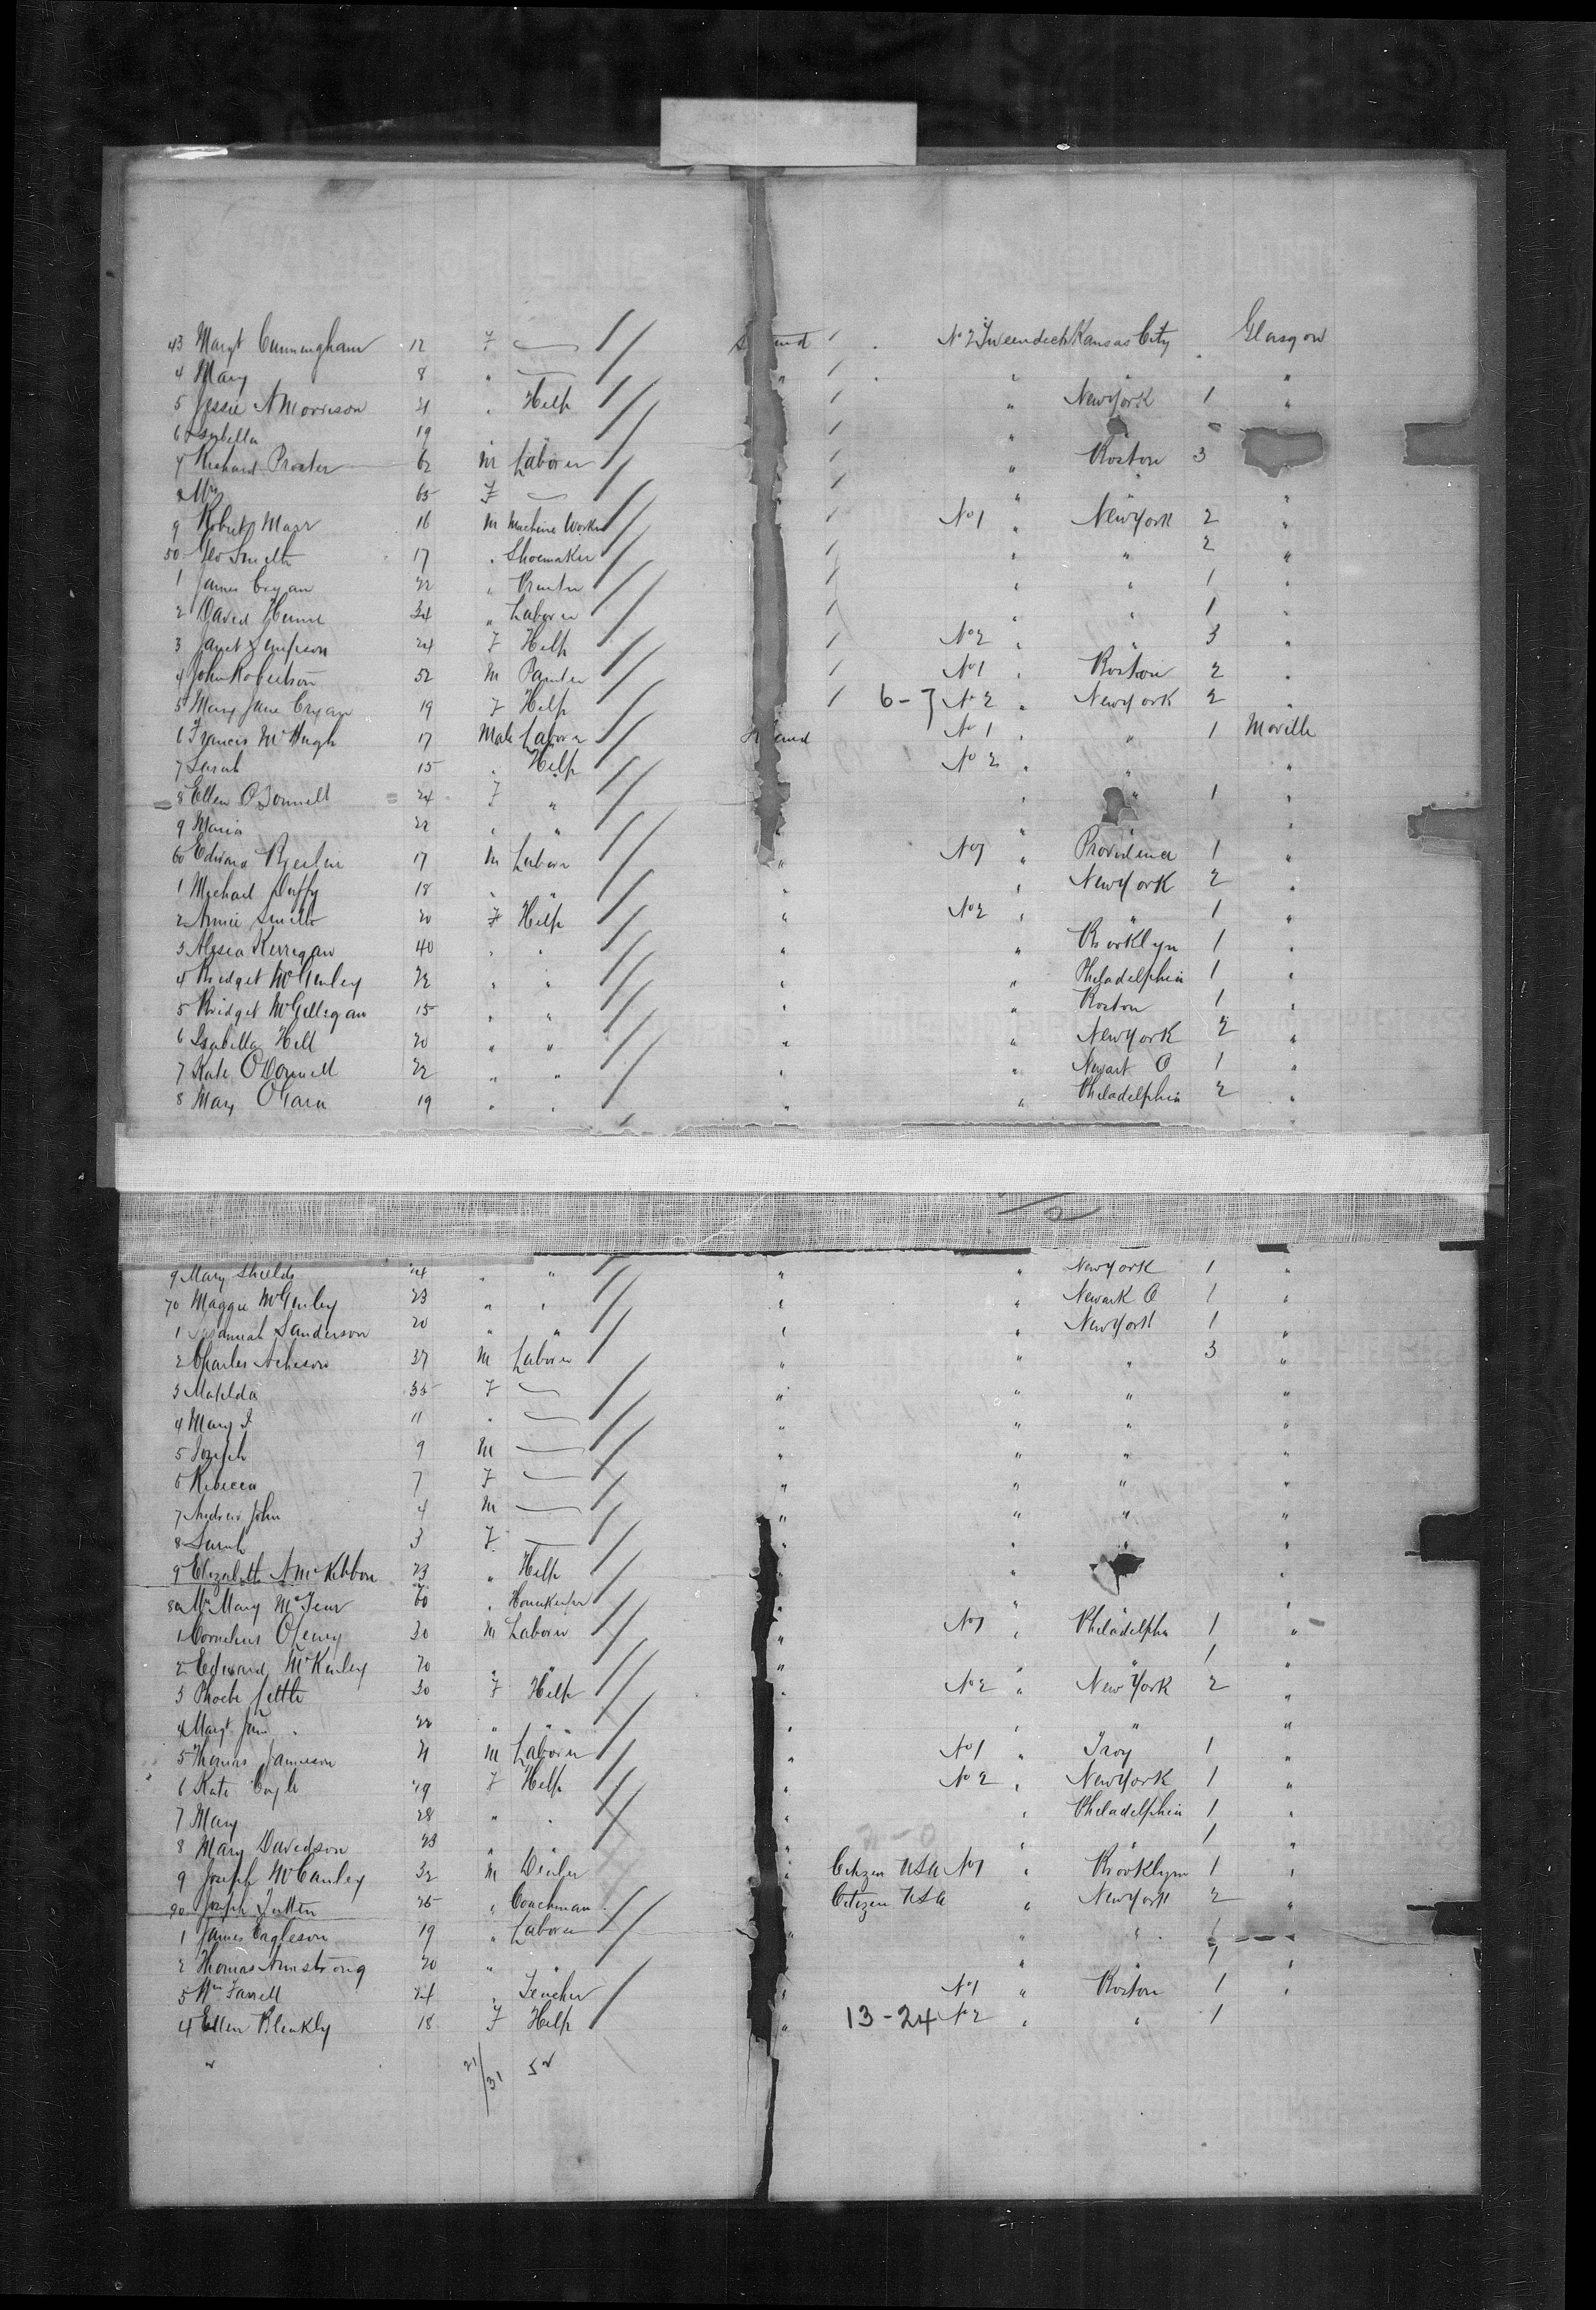 43 Margt Cunningham 12 F — S and / No 2 Tweendeck Kansas City Glasgow
4 Mary 8 " — " / " " "
5 Jessie A Morrison 21 " Help / " New York 1 "
6 Isabella 19 " " / " "
7 Richard Procter 62 M Laborer / " Boston 3 "
8 Mrs 65 F — / " " "
9 Robert Marr 16 M Machine Worker / No 1 " New York 2 "
50 Geo Smith 17 " Shoemaker / " " 2 "
1 James Cryan 22 " / " " 1 "
2 David Hume 34 " Laborer / " " 1 "
3 Janet Simpson 24 F Help / No 2 " " 3 "
4 John Robertson 52 M Painter / No 1 " Boston 2 "
5 Mary Jane Cryan 19 F Help / 6-7 No 2 " New York 2 "
6 Francis McHugh 17 Male Laborer and No 1 " " 1 Moville
7 Sarah 15 " Help No 2 " " "
8 Ellen O'Donnell 24 F " " " 1 "
9 Maria 22 " " " " " "
60 Edward 17 M Laborer " No 1 " Providence 1 "
1 Michael Duffy 18 " " " " New York 2 "
2 Annie Smith 20 F Help " No 2 " " 1 "
3 Alysia Kerrigan 40 " " " " Brooklyn 1 "
4 Bridget McGinley 22 " " " " Philadelphia 1 "
5 Bridget McGettigan 15 " " " " Boston 1 "
6 Isabella Hill 20 " " " " New York 2 "
7 Kate O'Donnell 22 " " " " Newark O 1 "
8 Mary O'Gara 19 " " " " Philadelphia 2 "
9 Mary Shields 24 " " " " New York 1 "
70 Maggie McGinley 23 " " " " Newark O 1 "
1 Susannah Sanderson 20 " " " " New York 1 "
2 Charles Acheson 37 M Laborer " " " 3 "
3 Matilda 35 F — " " " "
4 Mary J 11 " — " " " "
5 Joseph 9 M — " " " "
6 Rebecca 7 F — " " " "
7 Andrew John 4 M — " " " "
8 Sarah 3 F — " " " "
9 Elizabeth A McKibbon 23 " Help " "
80 Mrs Mary McFear 60 " Housekeeper " " " "
1 Cornelius 30 M Laborer " No 1 " Philadelpha 1 "
2 Edward McKinley 70 " " " " " 1 "
3 Phoebe Little 30 F Help " No 2 " New York 2 "
4 Margt Jane 22 " " " " " "
5 Thomas Jamieson 21 M Laborer " No 1 " Troy 1 "
6 Kate Coyle 19 F Help " No 2 " New York 1 "
7 Mary 28 " " " " Philadelphia 1 "
8 Mary Davidson 23 " " " " " 1 "
9 Joseph McCauley 32 M Dealer " Citizen USA No 1 " Brooklyn 1 "
90 Joseph 25 " Coachman Citizen USA " New York 2 "
1 James Eagleson 19 " Laborer " " " "
2 Thomas Armstrong 20 " " " " " 1 "
3 Wm Farrell 24 " Teacher " No 1 " Boston 1 "
4 Ellen Blenkly 18 F Help " 13-24 No 2 " " 1
21/31 52